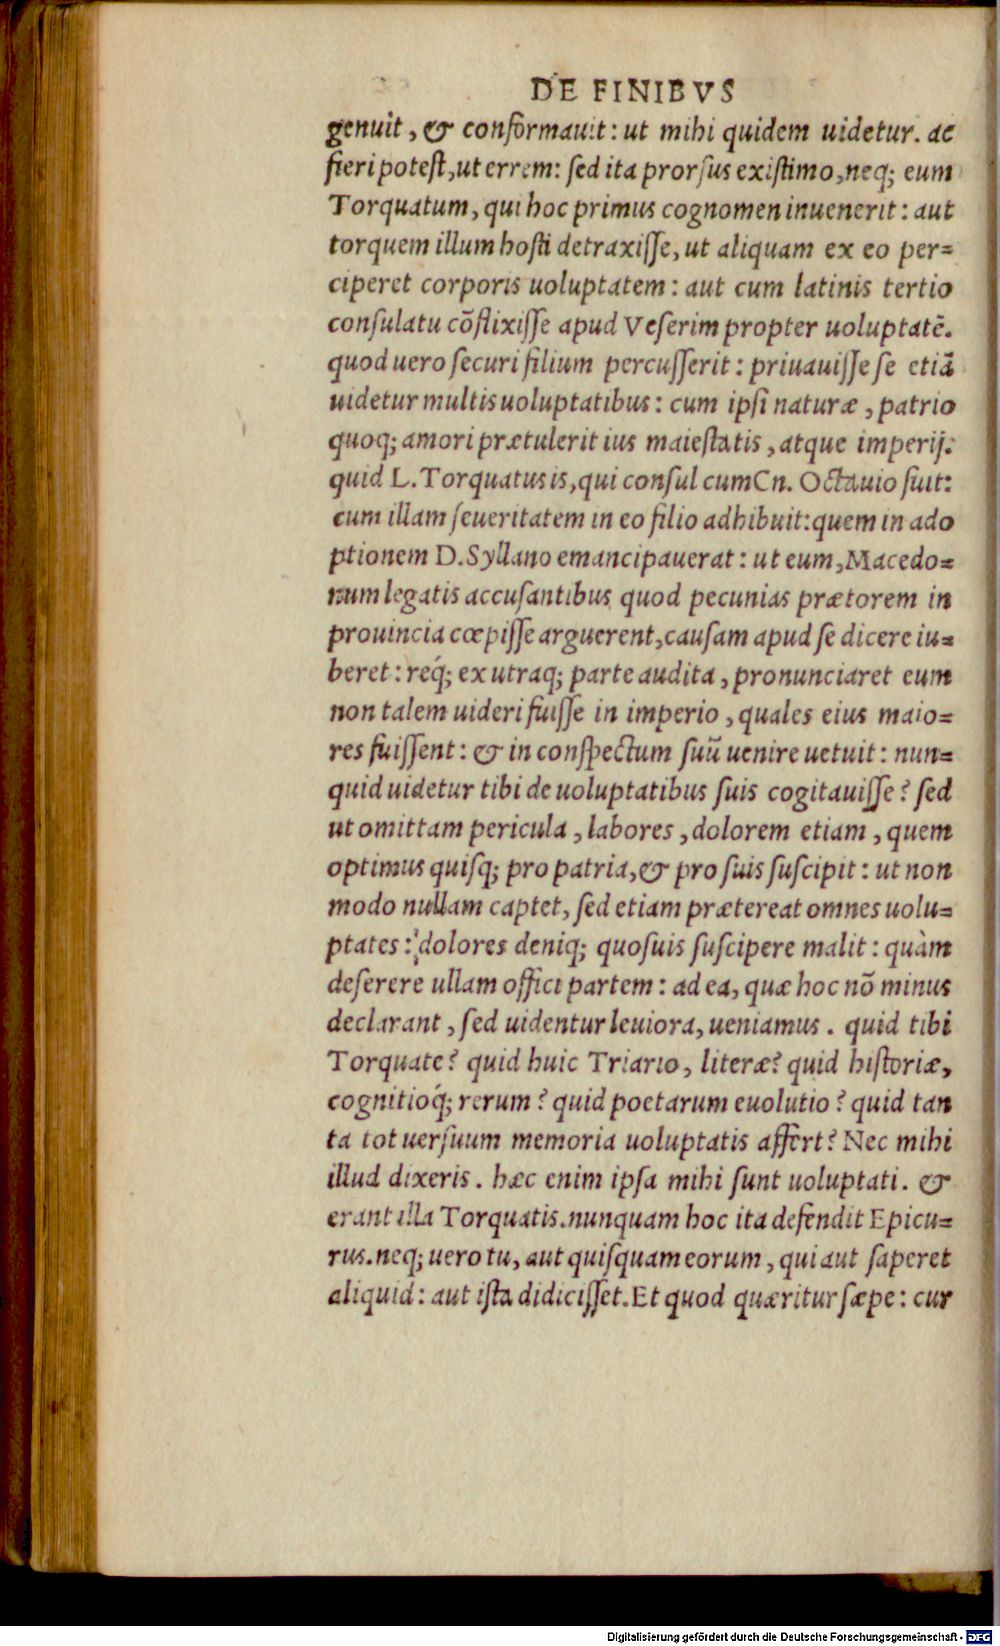 DE FINIBVS
genuit, & conformauit: ut mihi quidem uidetur. ac
fieri potest, ut errem: sed ita prorsus existimo, neq; eum
Torquatum, qui hoc primus cognomen inuenerit: aut
torquem illum hosti detraxisse, ut aliquam ex eo per=
ciperet corporis uoluptatem: aut cum latinis tertio
consulatu cõflixisse apud Veserim propter uoluptatẽ.
quod uero securi filium percusserit: priuauisse se etiã
uidetur multis uoluptatibus: cum ipsi naturæ, patrio
quoq; amori prætulerit ius maiestatis, atque imperij.
quid L. Torquatus is, qui consul cum Cn. Octauio fuit:
cum illam seueritatem in eo filio adhibuit: quem in ado
ptionem D. Syllano emancipauerat: ut eum, Macedo=
num legatis accusantibus quod pecunias prætorem in
prouincia cœpisse arguerent, causam apud se dicere iu=
beret: req́; ex utraq; parte audita, pronunciaret eum
non talem uideri fuisse in imperio, quales eius maio=
res fuissent: & in conspectum suũ uenire uetuit: nun=
quid uidetur tibi de uoluptatibus suis cogitauisse? sed
ut omittam pericula, labores, dolorem etiam, quem
optimus quisq; pro patria, & pro suis suscipit: ut non
modo nullam captet, sed etiam prætereat omnes uolu=
ptates: dolores deniq; quosuis suscipere malit: quàm
deserere ullam offici partem: ad ea, quæ hoc nõ minus
declarant, sed uidentur leuiora, ueniamus. quid tibi
Torquate? quid huic Triario, literæ? quid historiæ,
cognitioq́; rerum? quid poetarum euolutio? quid tan
ta tot uersuum memoria uoluptatis affert? Nec mihi
illud dixeris. hæc enim ipsa mihi sunt uoluptati. &
erant illa Torquatis. nunquam hoc ita defendit Epicu=
rus. neq; uero tu, aut quisquam eorum, qui aut saperet
aliquid: aut ista didicisset. Et quod quæritur sæpe: cur
Digitalisierung gefördert durch die Deutsche Forschungsgemeinschaft - DFG